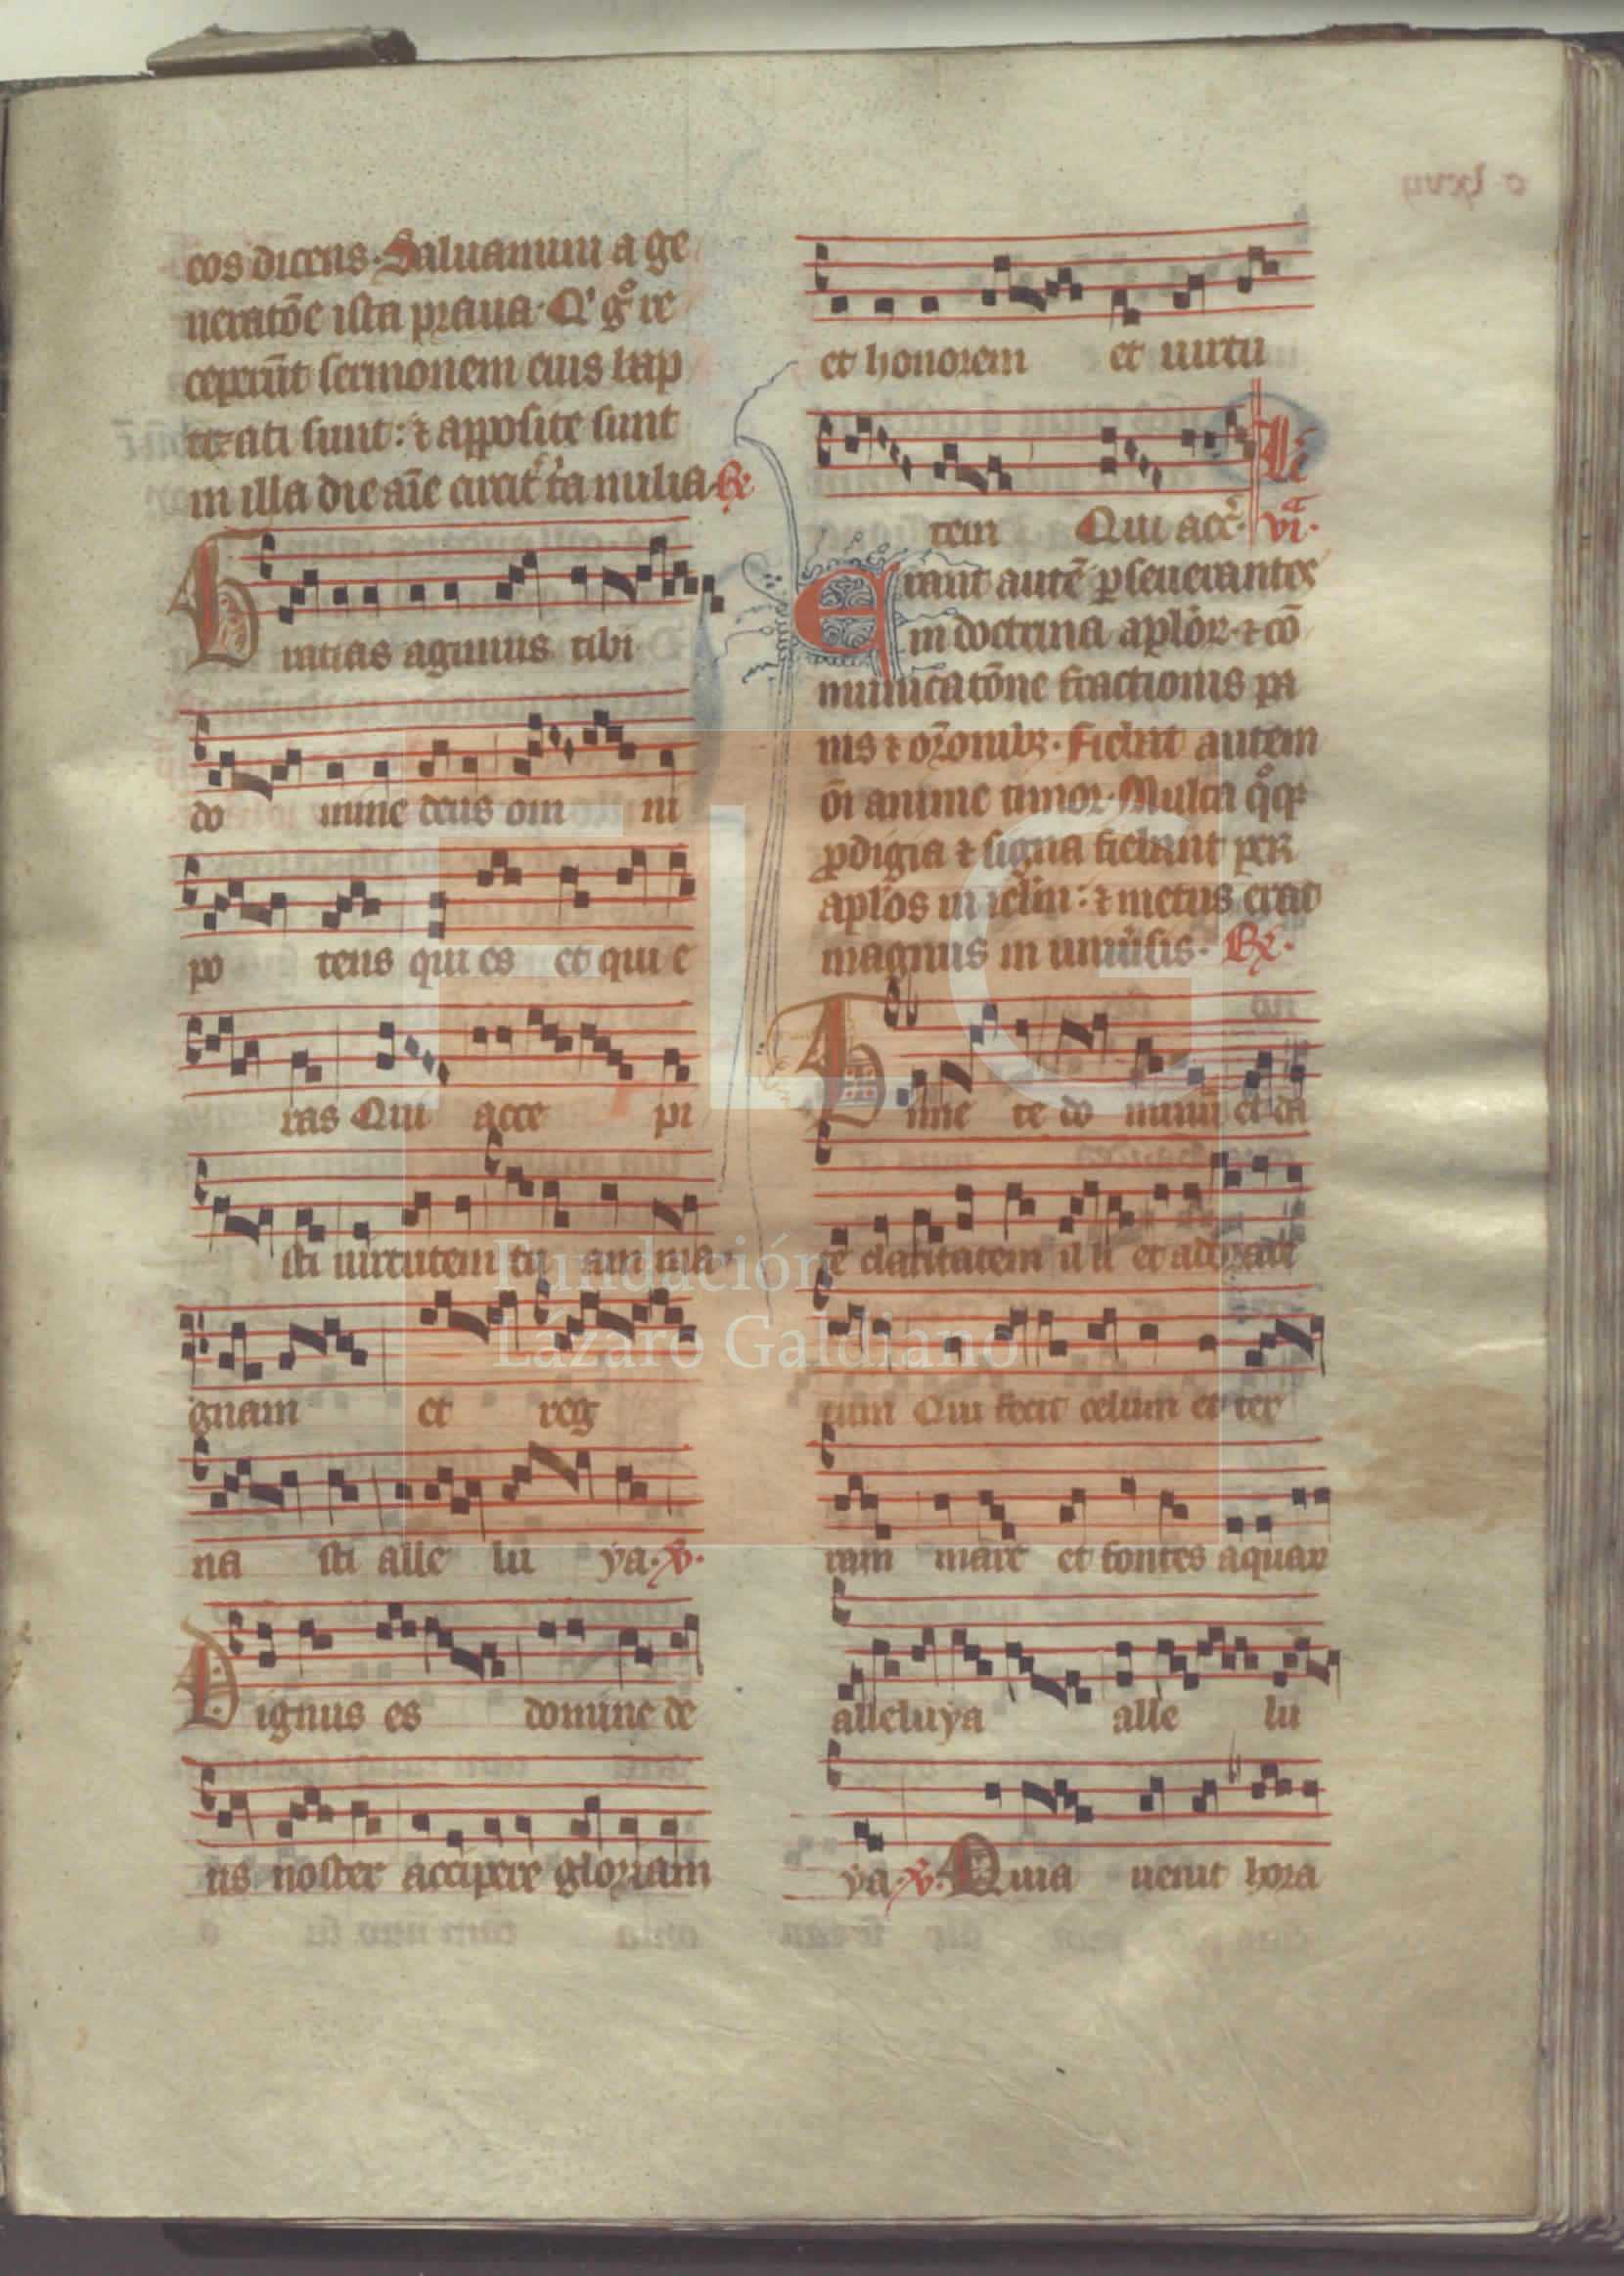 eos dicens. Saluamini a ge
neratōe ista praua. Q' gͦ re
ceperūt sermonem eius bap
tizati sunt: ⁊ apposite sunt
in illa die aīe circit͛ t͛a milia. R̃.
Gratias agimus tibi
do mine deus om ni
po tens qui es et qui e
ras Qui acce pi
sti uirtutem tu am ma
gnam et reg
na sti alle lu ya. v̄.
Dignus es domine de
us noster accipere gloriam
et honorem et uirtu
tem Qui acc̄. Lc̄
vi.ͣ
Erant autē ꝑseuerantes
in doctrina apl'oꝝ. ⁊ cō
municatōne fractionis pa
nis ⁊ or̄onibꝫ. Fiebat autem
ōi anime timor. Multa qͦqꝫ
ꝓdigia ⁊ signa fiebant per
apl'os in ier̄lm: ⁊ metus erat
magnus in uniūsis. R̃.
Time te do minū et da
te claritatem il li et adorate
eum Qui fecit celum et ter
ram mare et fontes aquaꝝ
alleluya alle lu
ya. v̄. Quia uenit hora
c lxvii
FLG
Fundación
Lázaro Galdiano